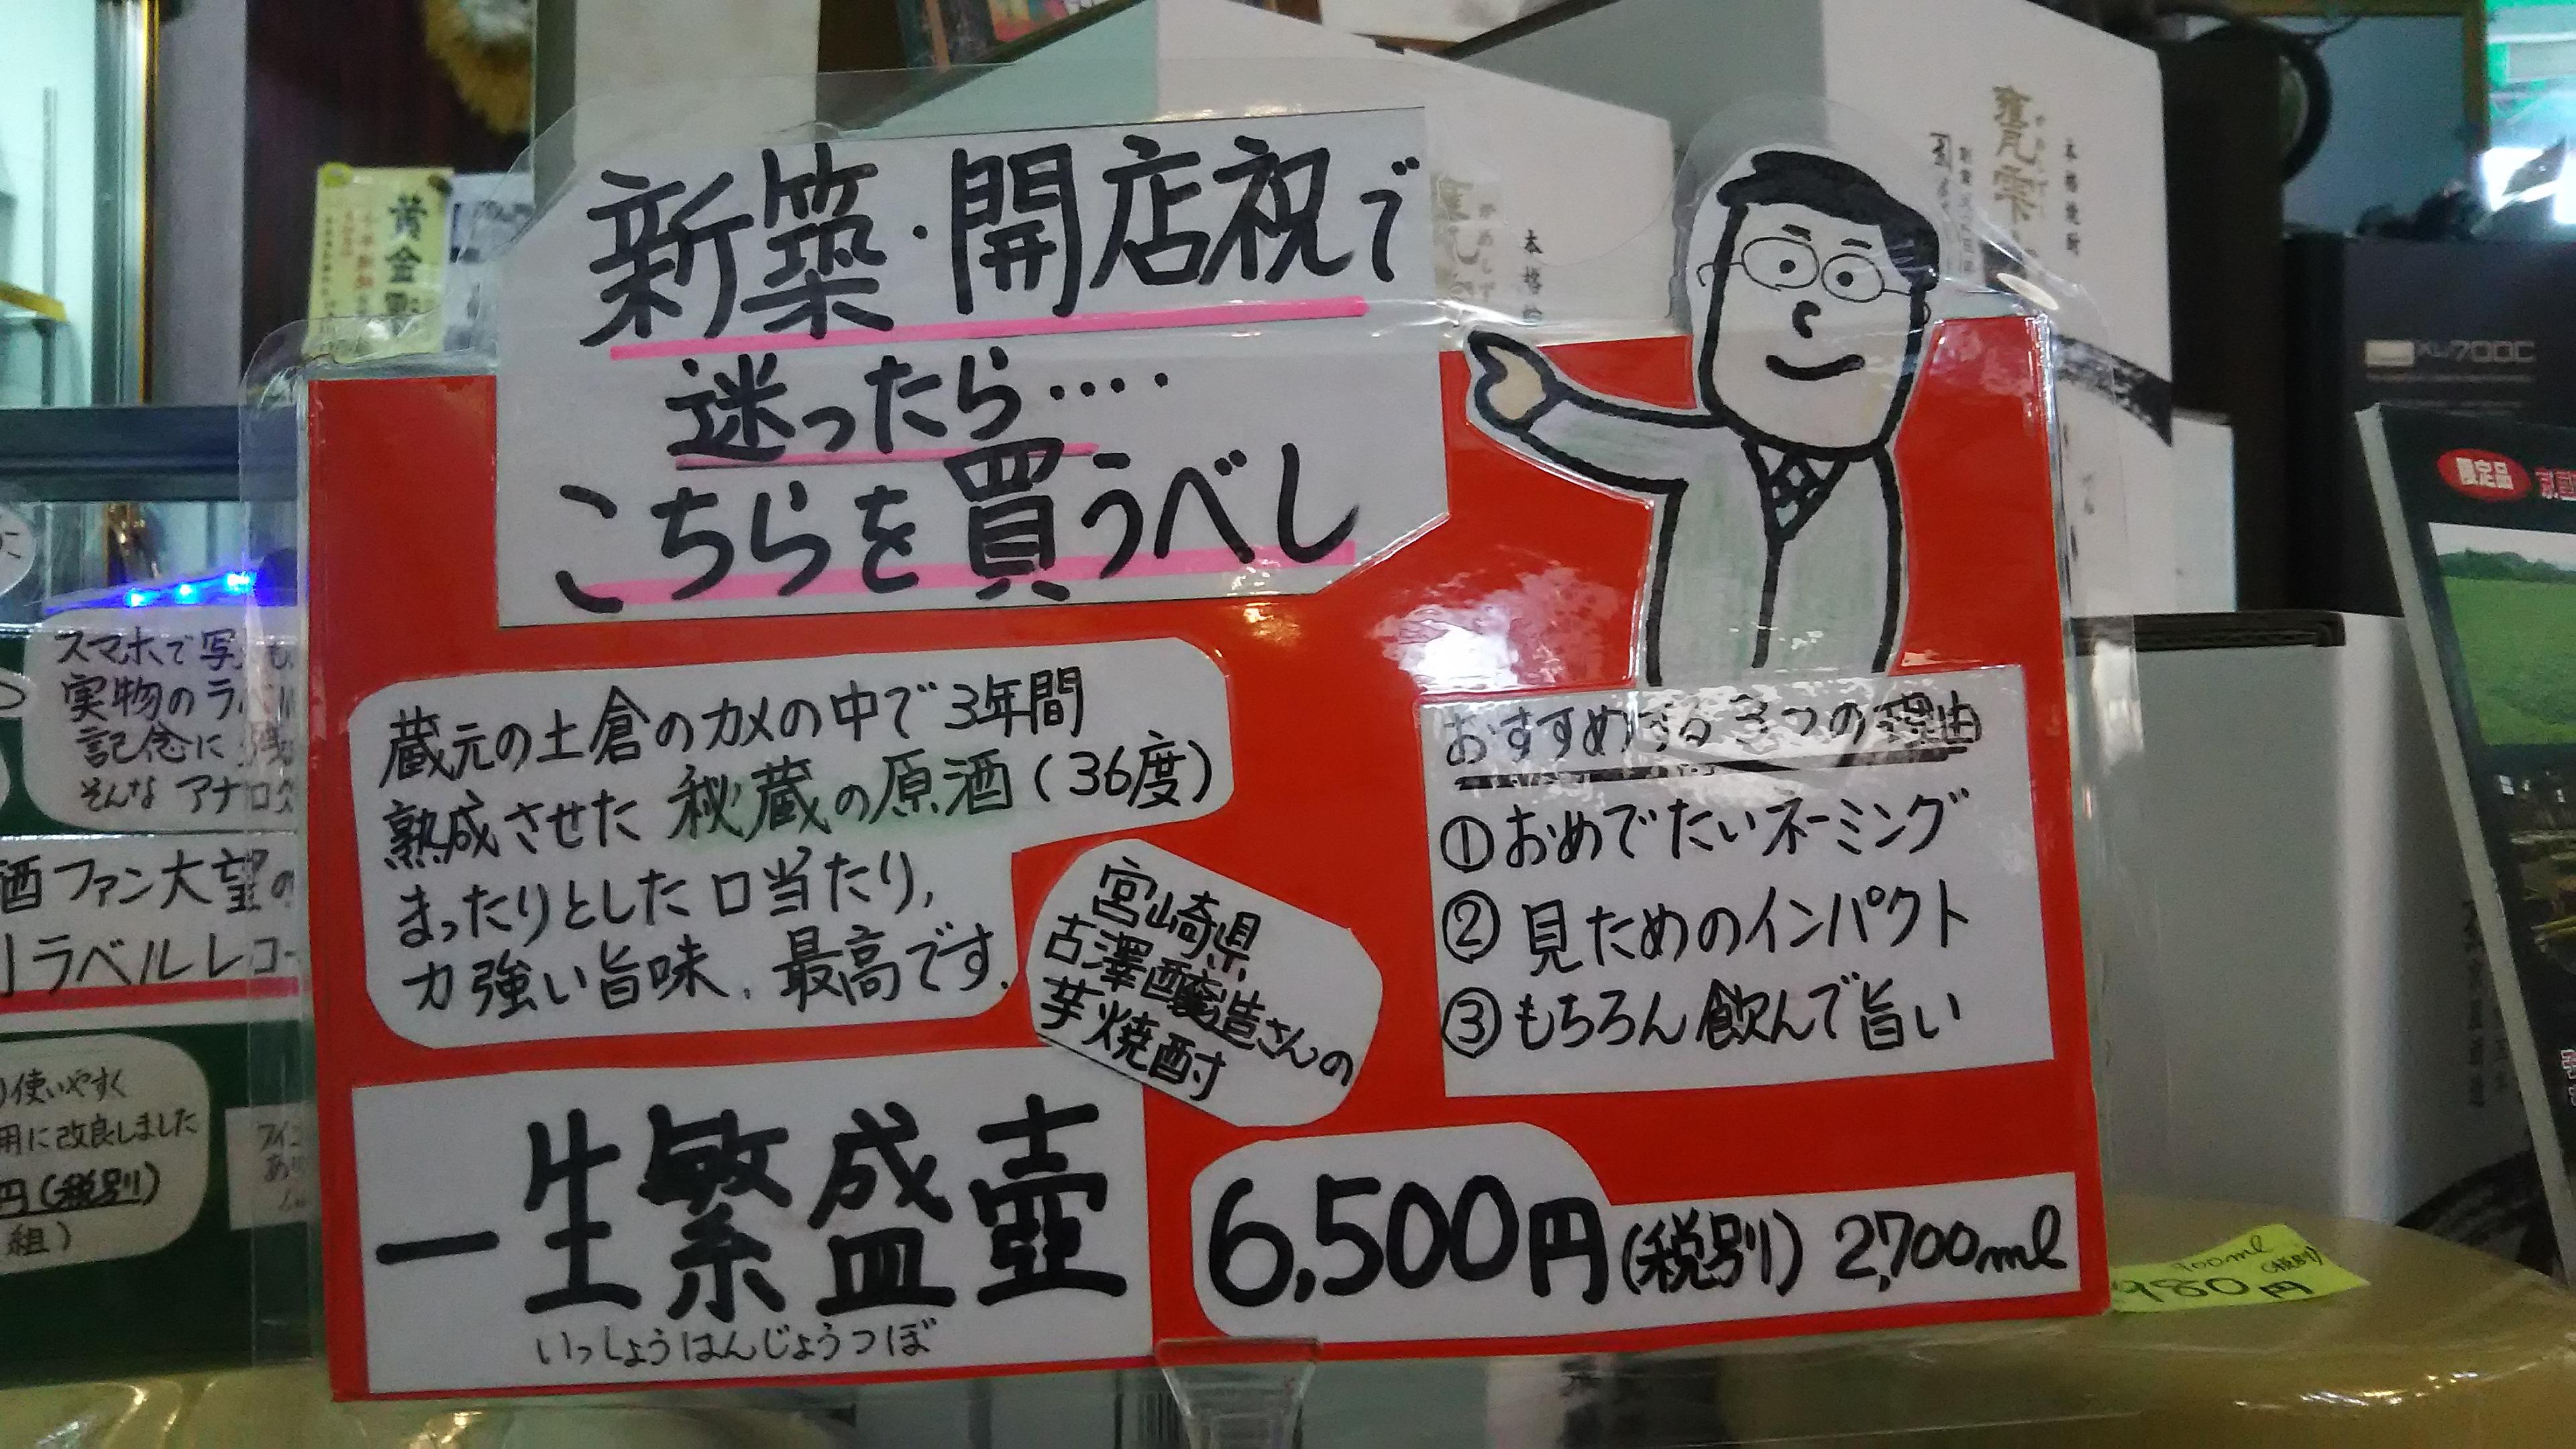 新築・開店祝で
迷ったら‥‥
こちらを買うべし
蔵元の土倉のカメの中で3年間
熟成させた秘蔵の原酒(36度)
まったりとした口当たり、
力強い旨味、最高です.
宮崎県
古澤醸造さんの
芋焼酎
おすすめする3つの理由
①おめでたいネーミング
②見ためのインパクト
③もちろん飲んで旨い
一生繁盛壺
いっしょうはんじょうつぼ
6,500円(税別) 2,700ml
スマホで写
実物のラ
記念に
そんなアナログ
酒ファン大望の
ラベルレコー
使いやすく
用に改良しました
円(税別)
組)
黄金
本格焼酎
甕雫
本格
限定品
900ml
(税別)
980円